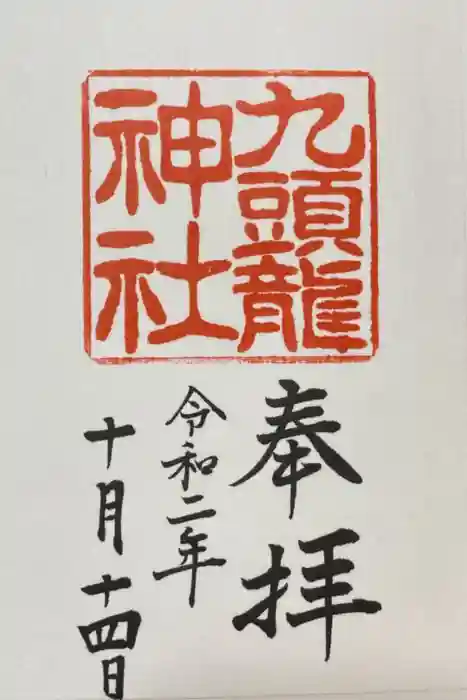 九頭龍
神社
奉拝
令和二年
十月十四日